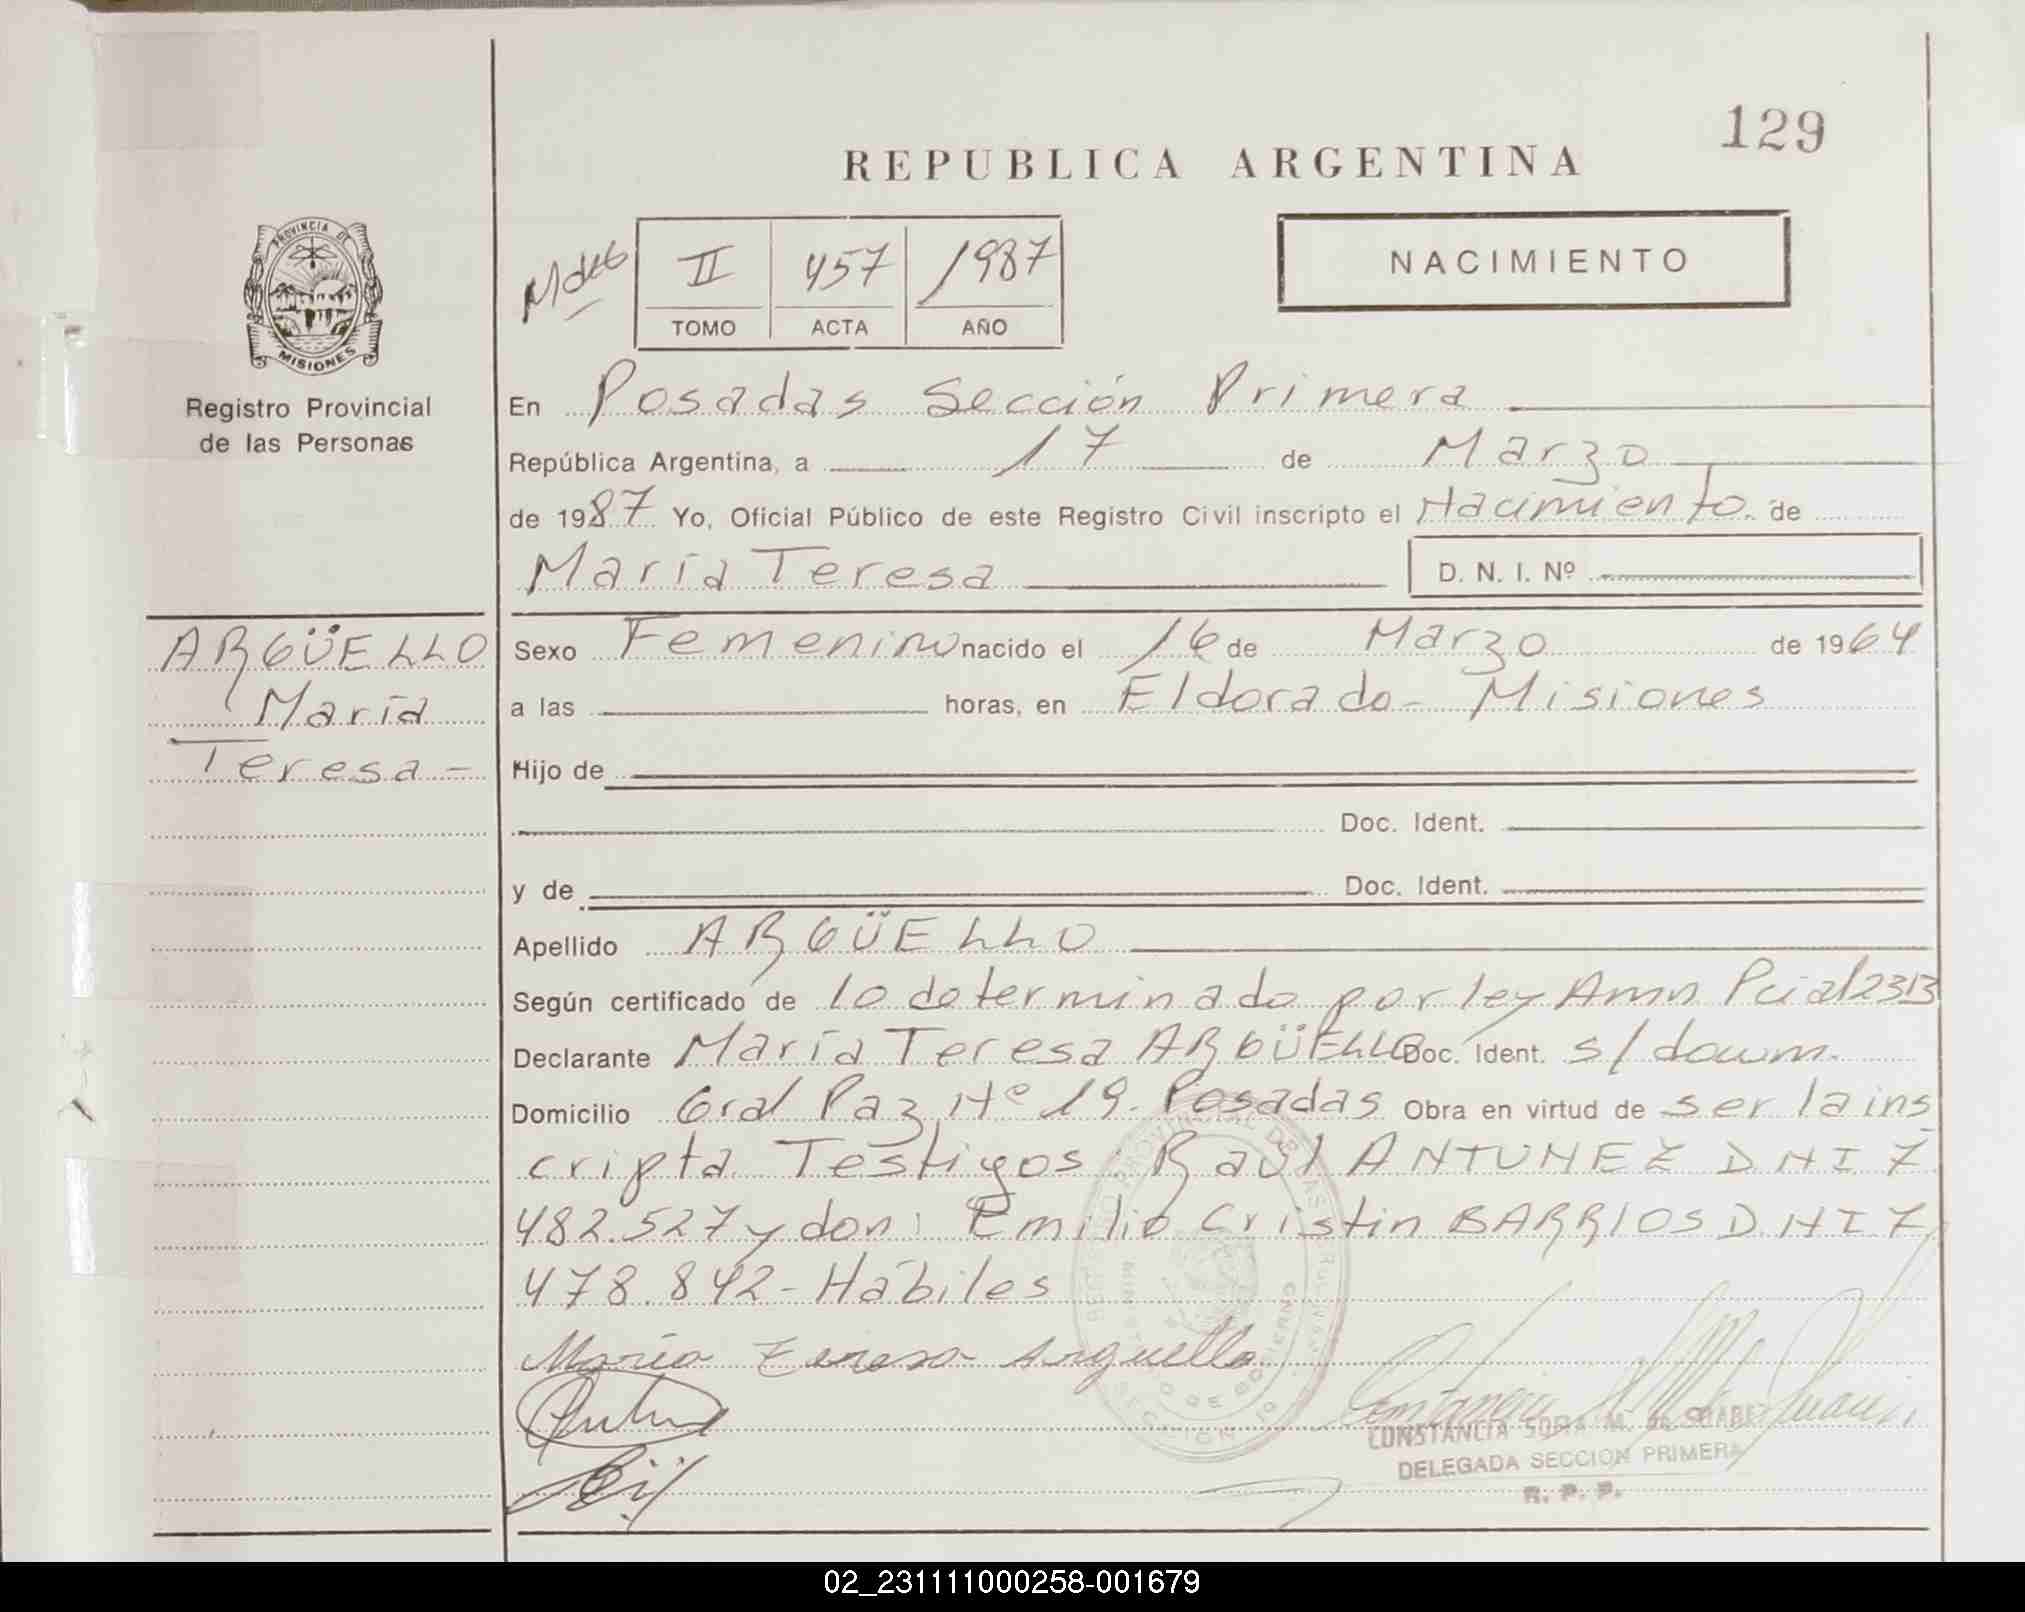 129
REPUBLICA ARGENTINA
PROVINCIA DE
MISIONES
II 457 1987
TOMO ACTA AÑO
NACIMIENTO
Registro Provincial
de las Personas
En Posadas Sección Primera
República Argentina, a 17 de Marzo
de 1987 Yo, Oficial Público de este Registro Civil inscripto el Nacimiento. de
María Teresa D. N. I. Nº
ARGÜELLO
María
Teresa -
Sexo Femenino nacido el 16 de Marzo de 1964
a las horas, en Eldorado - Misiones
Hijo de
Doc. Ident.
y de Doc. Ident.
Apellido ARGÜELLO
Según certificado de lo determinado por ley Amn Pcial 2313
Declarante María Teresa ARGÜELLO Doc. Ident. s/docum.
Domicilio Gral Paz Nº 19. Posadas Obra en virtud de ser la ins
cripta Testigos: Raúl ANTUNEZ D N I 7
482.527 y don: Emilio Cristin BARRIOS D.N I 7
478.842 - Hábiles
María Teresa Arguello
CONSTANCIA SOFIA M. de SUAREZ
DELEGADA SECCION PRIMERA
R. P. P.
02_231111000258-001679